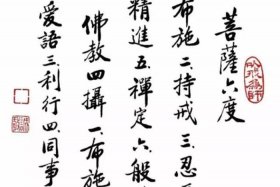 菩薩六度
布施二、持戒、三、忍
精進五、禪定、六、般
佛教四攝一、布施
愛語三、利行四、同事